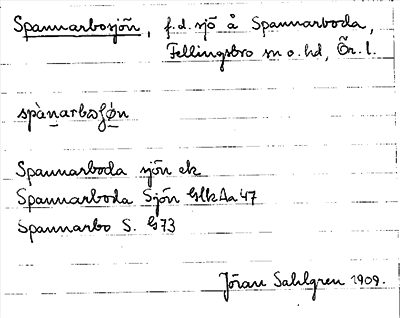 Spannarbosjön, f.d. sjö å Spannarboda,
Fellingsbro sn o. hd, Ör. l.
Spannarboda sjön ek
Spannarboda Sjön GlkAa 47
Spannarbo S. G73
Jöran Sahlgren 1909.